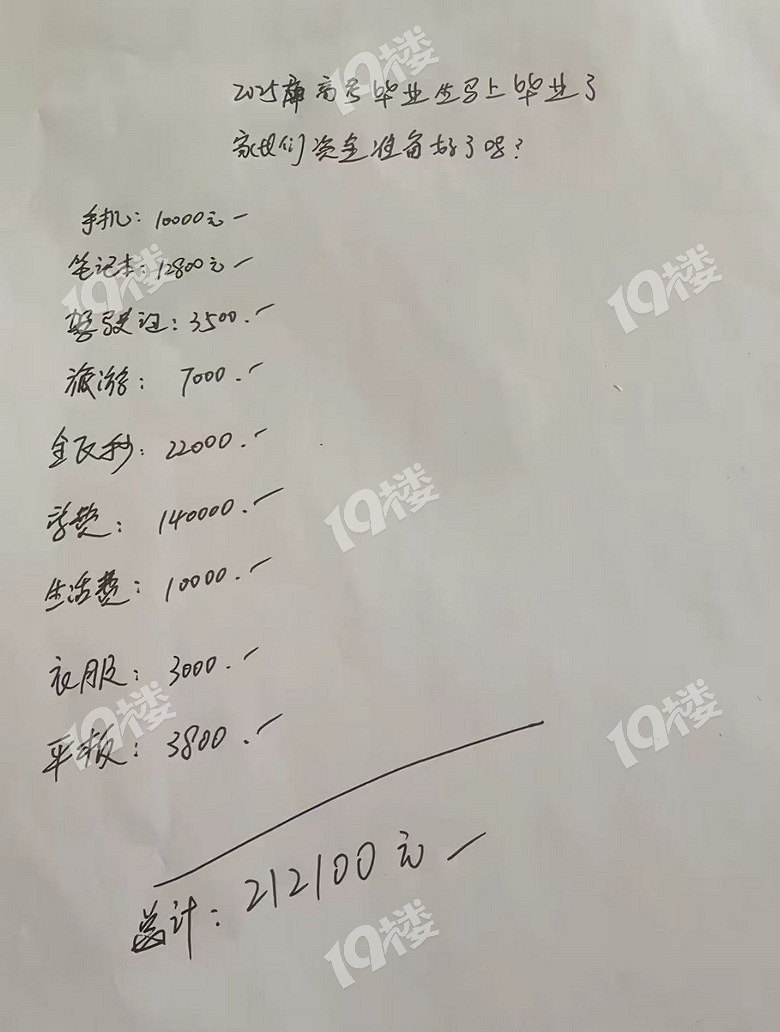 2025年高考毕业生马上毕业了
家长们资金准备好了吗?
手机: 10000元
笔记本: 12800元
驾驶证: 3500.
旅游: 7000.
22000.
学费: 140000.
生活费: 10000.
衣服: 3000.
平板: 3800.
总计: 212100元
19楼
19楼
19楼
19楼
19楼
19楼
19楼